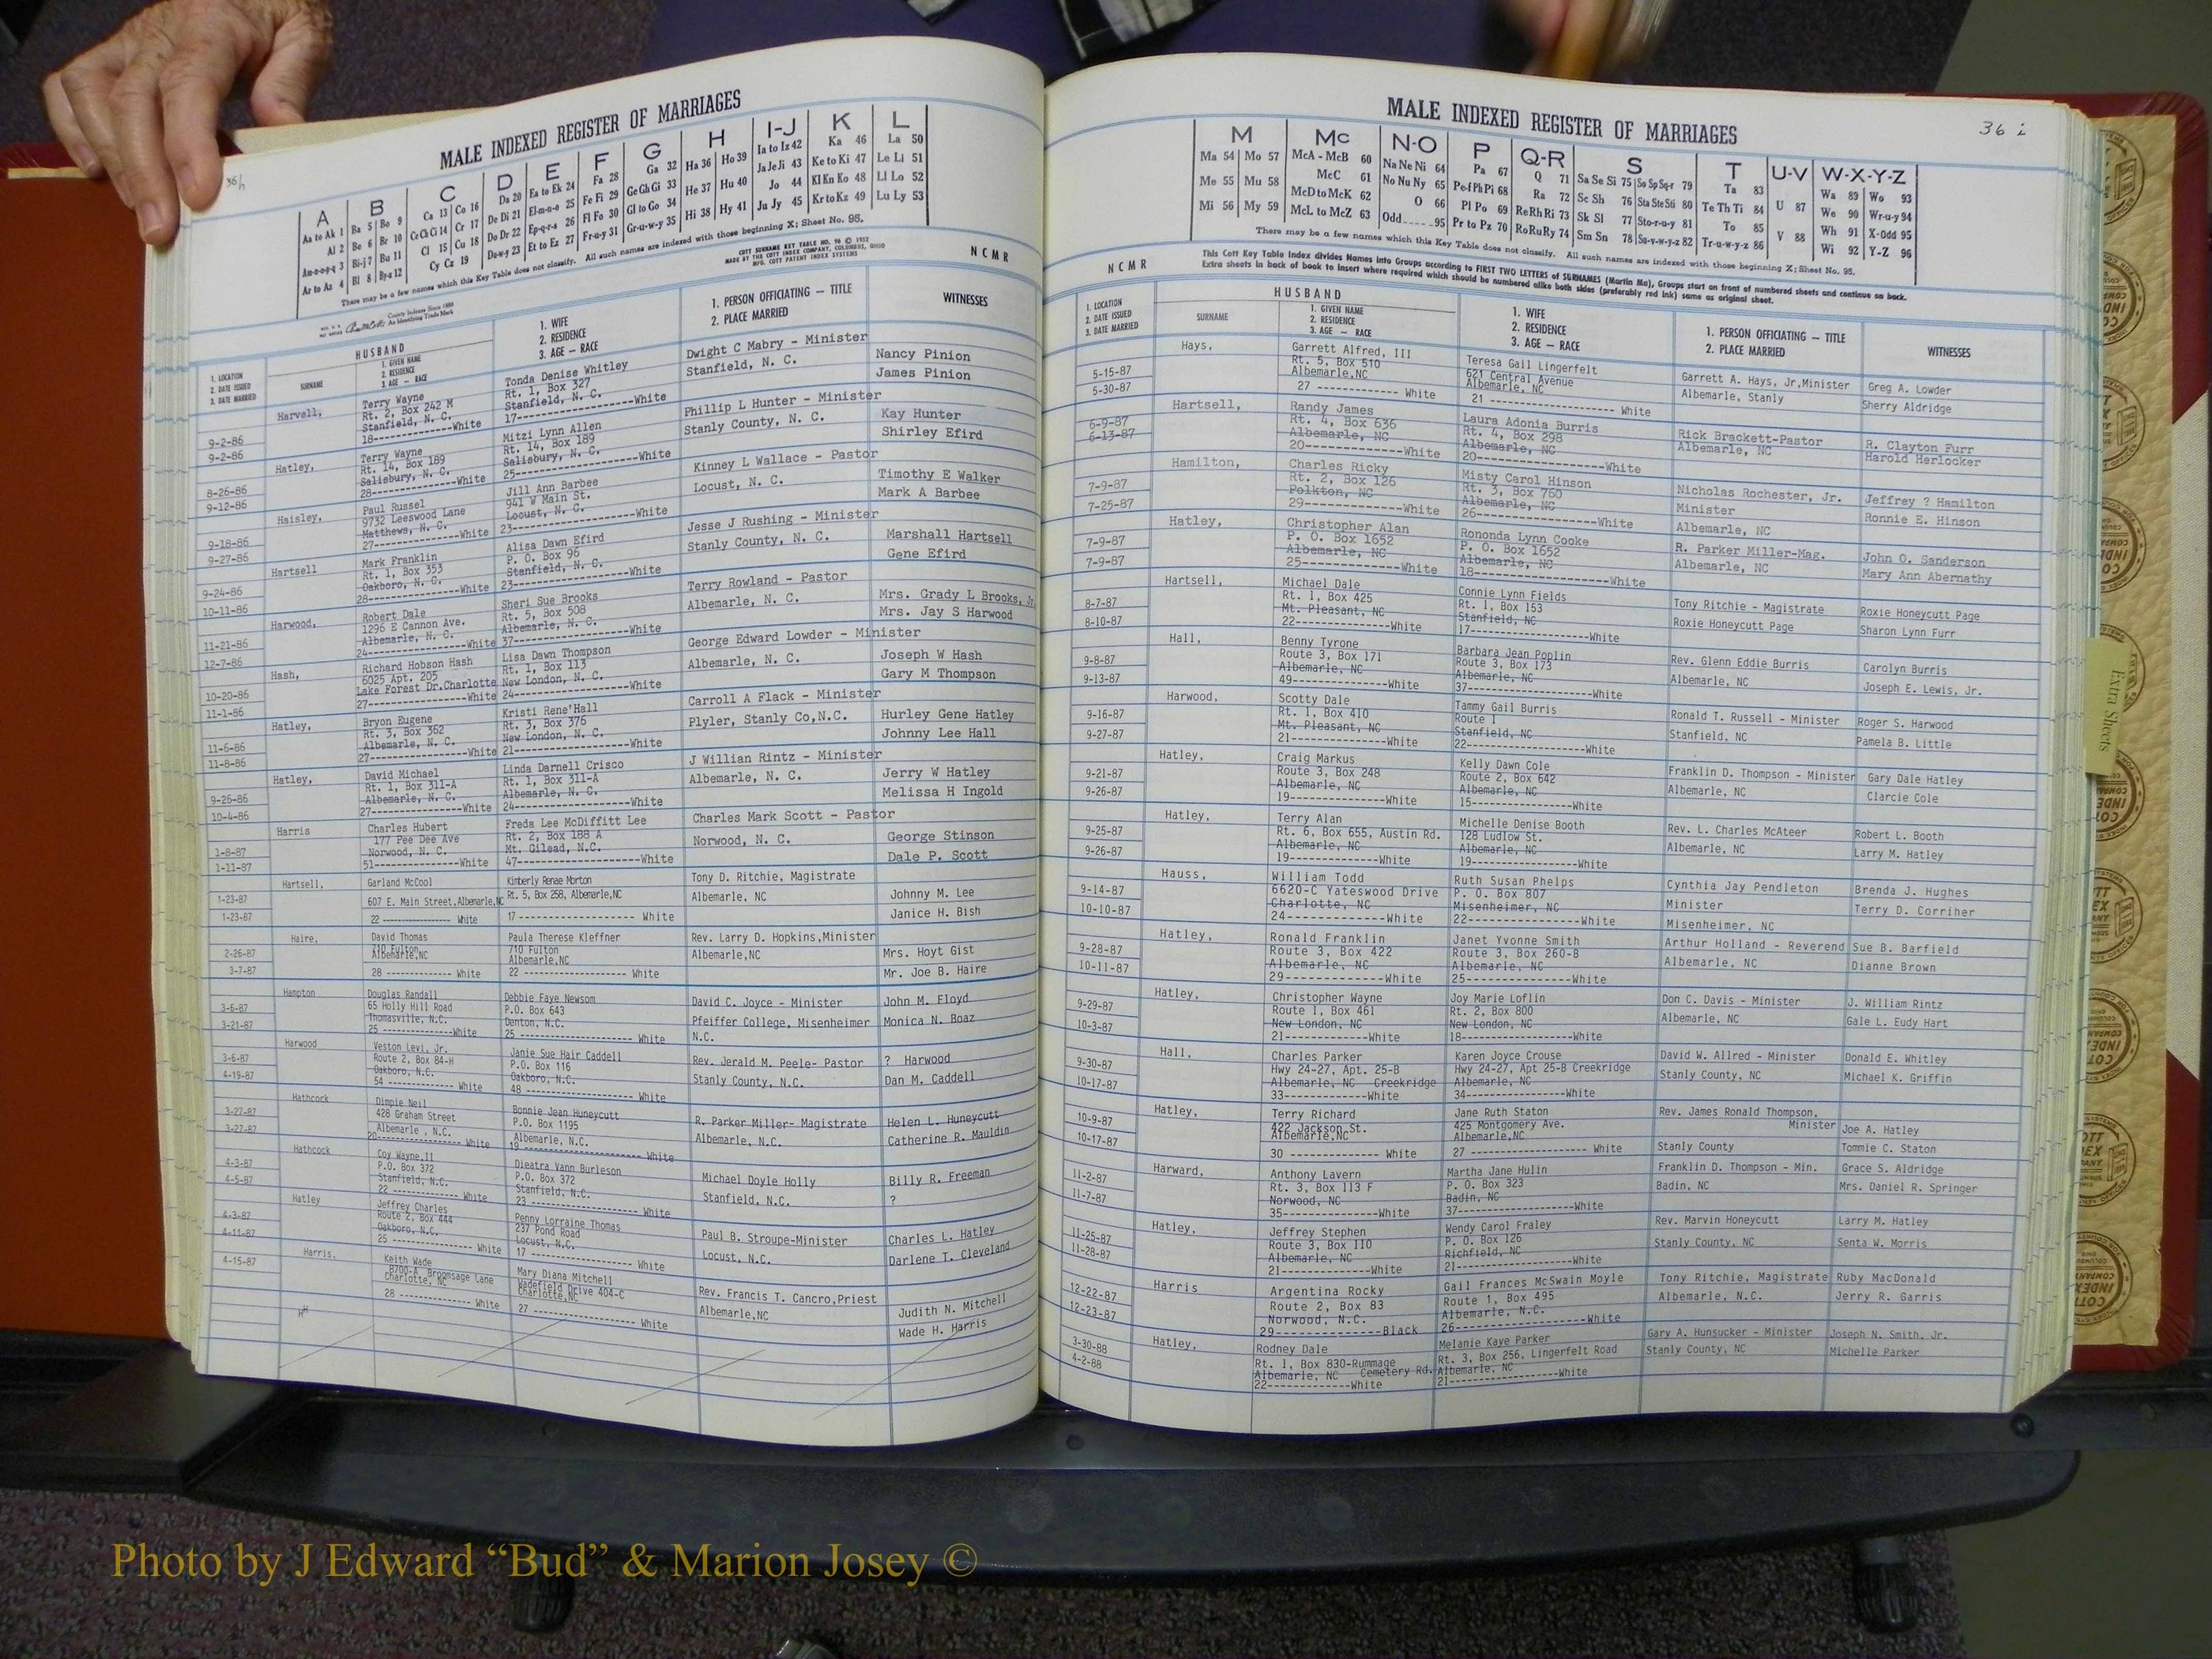 MALE INDEXED REGISTER OF MARRIAGES
36h
A B C D E F G H I-J K L
Aa to Ak 1 Ba 5 Bo 9 Ca 13 Co 16 Da 20 Ea to Ek 24 Fa 28 Ga 32 Ha 36 Ho 39 Ia to Iz 42 Ka 46 La 50
Al 2 Be 6 Br 10 Ce Ch Ci 14 Cr 17 De Di 21 El-m-n-o 25 Fe Fi 29 Ge Gh Gi 33 He 37 Hu 40 Ja Je Ji 43 Ke to Ki 47 Le Li 51
Am-n-o-p-q 3 Bi-j 7 Bu 11 Cl 15 Cu 18 Do Dr 22 Ep-q-r-s 26 Fl Fo 30 Gl to Go 34 Hi 38 Hy 41 Jo 44 Kl Kn Ko 48 Ll Lo 52
Ar to Az 4 Bl 8 By-z 12 Cy Cz 19 Du-w-y 23 Et to Ez 27 Fr-u-y 31 Gr-u-w-y 35 Ju Jy 45 Kr to Kz 49 Lu Ly 53
There may be a few names which this Key Table does not classify. All such names are indexed with those beginning X; Sheet No. 95.
COTT SURNAME KEY TABLE NO. 96 © 1952
MADE BY THE COTT INDEX COMPANY, COLUMBUS, OHIO
MFG. COTT PATENT INDEX SYSTEMS
NCMR
County Indexes Since 1888
An Identifying Trade Mark
1. LOCATION
2. DATE ISSUED
3. DATE MARRIED
HUSBAND
SURNAME
1. GIVEN NAME
2. RESIDENCE
3. AGE — RACE
1. WIFE
2. RESIDENCE
3. AGE — RACE
1. PERSON OFFICIATING — TITLE
2. PLACE MARRIED
WITNESSES
Harvell, Terry Wayne Tonda Denise Whitley Dwight C Mabry - Minister Nancy Pinion
Rt. 2, Box 242 M Rt. 1, Box 327 Stanfield, N. C. James Pinion
9-2-86 Stanfield, N. C. Stanfield, N. C.
9-2-86 18--------------White 17--------------White
Hatley, Terry Wayne Mitzi Lynn Allen Phillip L Hunter - Minister Kay Hunter
Rt. 14, Box 189 Rt. 14, Box 189 Stanly County, N. C. Shirley Efird
8-26-86 Salisbury, N. C. Salisbury, N. C.
9-12-86 28--------------White 25--------------White
Haisley, Paul Russel Jill Ann Barbee Kinney L Wallace - Pastor Timothy E Walker
9732 Leeswood Lane 941 W Main St. Locust, N. C. Mark A Barbee
9-18-86 Matthews, N. C. Locust, N. C.
9-27-86 27--------------White 23--------------White
Hartsell Mark Franklin Alisa Dawn Efird Jesse J Rushing - Minister Marshall Hartsell
Rt. 1, Box 353 P. O. Box 96 Stanly County, N. C. Gene Efird
9-24-86 Oakboro, N. C. Stanfield, N. C.
10-11-86 28--------------White 23--------------White
Harwood, Robert Dale Sheri Sue Brooks Terry Rowland - Pastor Mrs. Grady L Brooks, Jr
1296 E Cannon Ave. Rt. 5, Box 508 Albemarle, N. C. Mrs. Jay S Harwood
11-21-86 Albemarle, N. C. Albemarle, N. C.
12-7-86 24--------------White 37--------------White
Hash, Richard Hobson Hash Lisa Dawn Thompson George Edward Lowder - Minister Joseph W Hash
6025 Apt. 205 Rt. 1, Box 113 Albemarle, N. C. Gary M Thompson
10-20-86 Lake Forest Dr.Charlotte New London, N. C.
11-1-86 27--------------White 24--------------White
Hatley, Bryon Eugene Kristi Rene'Hall Carroll A Flack - Minister Hurley Gene Hatley
Rt. 3, Box 362 Rt. 3, Box 376 Plyler, Stanly Co,N.C. Johnny Lee Hall
11-6-86 Albemarle, N. C. New London, N. C.
11-8-86 27--------------White 21--------------White
Hatley, David Michael Linda Darnell Crisco J Willian Rintz - Minister Jerry W Hatley
Rt. 1, Box 311-A Rt. 1, Box 311-A Albemarle, N. C. Melissa H Ingold
9-26-86 Albemarle, N. C. Albemarle, N. C.
10-4-86 27--------------White 24--------------White
Harris Charles Hubert Freda Lee McDiffitt Lee Charles Mark Scott - Pastor George Stinson
177 Pee Dee Ave Rt. 2, Box 188 A Norwood, N. C. Dale P. Scott
1-8-87 Norwood, N. C. Mt. Gilead, N.C.
1-11-87 51--------------White 47--------------White
Hartsell, Garland McCool Kimberly Renae Morton Tony D. Ritchie, Magistrate Johnny M. Lee
1-23-87 607 E. Main Street,Albemarle,NC Rt. 5, Box 258, Albemarle,NC Albemarle, NC Janice H. Bish
1-23-87 22 -------------- White 17 -------------- White
Haire, David Thomas Paula Therese Kleffner Rev. Larry D. Hopkins,Minister Mrs. Hoyt Gist
2-26-87 710 Fulton 710 Fulton Albemarle,NC Mr. Joe B. Haire
Albemarle,NC Albemarle,NC
3-7-87 28 -------------- White 22 -------------- White
Hampton Douglas Randall Debbie Faye Newsom David C. Joyce - Minister John M. Floyd
3-6-87 65 Holly Hill Road P.O. Box 643 Pfeiffer College, Misenheimer Monica N. Boaz
3-21-87 Thomasville, N.C. Denton, N.C. N.C.
25 --------------White 25 -------------- White
Harwood Veston Levi, Jr. Janie Sue Hair Caddell Rev. Jerald M. Peele- Pastor ? Harwood
3-6-87 Route 2, Box 84-H P.O. Box 116 Stanly County, N.C. Dan M. Caddell
4-19-87 Oakboro, N.C. Oakboro, N.C.
54 -------------- White 48 -------------- White
Hathcock Dimpie Neil Bonnie Jean Huneycutt R. Parker Miller- Magistrate Helen L. Huneycutt
3-27-87 428 Graham Street P.O. Box 1195 Albemarle, N.C. Catherine R. Mauldin
3-27-87 Albemarle , N.C. Albemarle, N.C.
20-------------- White 19 -------------- White
Hathcock Coy Wayne,11 Dieatra Vann Burleson Michael Doyle Holly Billy R. Freeman
4-3-87 P.O. Box 372 P.O. Box 372 Stanfield, N.C. ?
4-5-87 Stanfield, N.C. Stanfield, N.C.
22 -------------- White 23 -------------- White
Hatley Jeffrey Charles Penny Lorraine Thomas Paul B. Stroupe-Minister Charles L. Hatley
4-3-87 Route 2, Box 444 237 Pond Road Locust, N.C. Darlene T. Cleveland
4-11-87 Oakboro, N.C. Locust, N.C.
25 -------------- White 17 -------------- White
Harris, Keith Wade Mary Diana Mitchell Rev. Francis T. Cancro,Priest Judith N. Mitchell
4-15-87 8700-A Broomsage Lane Wadefield Drive 404-C Albemarle,NC Wade H. Harris
Charlotte, NC Charlotte,NC
28 -------------- White 27 -------------- White
HH
MALE INDEXED REGISTER OF MARRIAGES
36 i
M Mc N-O P Q-R S T U-V W-X-Y-Z
Ma 54 Mo 57 McA - McB 60 Na Ne Ni 64 Pa 67 Q 71 Sa Se Si 75 So Sp Sq-r 79 Ta 83 U 87 Wa 89 Wo 93
Me 55 Mu 58 McC 61 No Nu Ny 65 Pe-f Ph Pi 68 Ra 72 Sc Sh 76 Sta Ste Sti 80 Te Th Ti 84 V 88 We 90 Wr-u-y 94
Mi 56 My 59 McD to McK 62 O 66 Pl Po 69 Re Rh Ri 73 Sk Sl 77 Sto-r-u-y 81 To 85 Wh 91 X-Odd 95
McL to McZ 63 Odd 95 Pr to Pz 70 Ro Ru Ry 74 Sm Sn 78 Su-v-w-y-z 82 Tr-u-w-y-z 86 Wi 92 Y-Z 96
There may be a few names which this Key Table does not classify. All such names are indexed with those beginning X; Sheet No. 95.
NCMR
This Cott Key Table Index divides Names into Groups according to FIRST TWO LETTERS of SURNAMES (Martin Ma), Groups start on front of numbered sheets and continue on back.
Extra sheets in back of book to insert where required which should be numbered alike both sides (preferably red ink) same as original sheet.
1. LOCATION
2. DATE ISSUED
3. DATE MARRIED
HUSBAND
SURNAME
1. GIVEN NAME
2. RESIDENCE
3. AGE — RACE
1. WIFE
2. RESIDENCE
3. AGE — RACE
1. PERSON OFFICIATING — TITLE
2. PLACE MARRIED
WITNESSES
Hays, Garrett Alfred, III Teresa Gail Lingerfelt Garrett A. Hays, Jr,Minister Greg A. Lowder
5-15-87 Rt. 5, Box 510 621 Central Avenue Albemarle, Stanly Sherry Aldridge
5-30-87 Albemarle,NC Albemarle, NC
27 -------------- White 21 -------------- White
Hartsell, Randy James Laura Adonia Burris Rick Brackett-Pastor R. Clayton Furr
6-9-87 Rt. 4, Box 636 Rt. 4, Box 298 Albemarle, NC Harold Herlocker
6-13-87 Albemarle, NC Albemarle, NC
20--------------White 20--------------White
Hamilton, Charles Ricky Misty Carol Hinson Nicholas Rochester, Jr. Jeffrey ? Hamilton
7-9-87 Rt. 2, Box 126 Rt. 3, Box 760 Minister Ronnie E. Hinson
7-25-87 Polkton, NC Albemarle, NC Albemarle, NC
29--------------White 26--------------White
Hatley, Christopher Alan Rononda Lynn Cooke R. Parker Miller-Mag. John O. Sanderson
7-9-87 P. O. Box 1652 P. O. Box 1652 Albemarle, NC Mary Ann Abernathy
7-9-87 Albemarle, NC Albemarle, NC
25--------------White 18--------------White
Hartsell, Michael Dale Connie Lynn Fields Tony Ritchie - Magistrate Roxie Honeycutt Page
8-7-87 Rt. 1, Box 425 Rt. 1, Box 153 Roxie Honeycutt Page Sharon Lynn Furr
8-10-87 Mt. Pleasant, NC Stanfield, NC
22--------------White 17--------------White
Hall, Benny Tyrone Barbara Jean Poplin Rev. Glenn Eddie Burris Carolyn Burris
9-8-87 Route 3, Box 171 Route 3, Box 173 Albemarle, NC Joseph E. Lewis, Jr.
9-13-87 Albemarle, NC Albemarle, NC
49--------------White 37--------------White
Harwood, Scotty Dale Tammy Gail Burris Ronald T. Russell - Minister Roger S. Harwood
9-16-87 Rt. 1, Box 410 Route 1 Stanfield, NC Pamela B. Little
9-27-87 Mt. Pleasant, NC Stanfield, NC
21--------------White 22--------------White
Hatley, Craig Markus Kelly Dawn Cole Franklin D. Thompson - Minister Gary Dale Hatley
9-21-87 Route 3, Box 248 Route 2, Box 642 Albemarle, NC Clarcie Cole
9-26-87 Albemarle, NC Albemarle, NC
19--------------White 15--------------White
Hatley, Terry Alan Michelle Denise Booth Rev. L. Charles McAteer Robert L. Booth
9-25-87 Rt. 6, Box 655, Austin Rd. 128 Ludlow St. Albemarle, NC Larry M. Hatley
9-26-87 Albemarle, NC Albemarle, NC
19--------------White 19--------------White
Hauss, William Todd Ruth Susan Phelps Cynthia Jay Pendleton Brenda J. Hughes
9-14-87 6620-C Yateswood Drive P. O. Box 807 Minister Terry D. Corriher
10-10-87 Charlotte, NC Misenheimer, NC Misenheimer, NC
24--------------White 22--------------White
Hatley, Ronald Franklin Janet Yvonne Smith Arthur Holland - Reverend Sue B. Barfield
9-28-87 Route 3, Box 422 Route 3, Box 260-B Albemarle, NC Dianne Brown
10-11-87 Albemarle, NC Albemarle, NC
29--------------White 25--------------White
Hatley, Christopher Wayne Joy Marie Loflin Don C. Davis - Minister J. William Rintz
9-29-87 Route 1, Box 461 Rt. 2, Box 800 Albemarle, NC Gale L. Eudy Hart
10-3-87 New London, NC New London, NC
21--------------White 18--------------White
Hall, Charles Parker Karen Joyce Crouse David W. Allred - Minister Donald E. Whitley
9-30-87 Hwy 24-27, Apt. 25-B Hwy 24-27, Apt 25-B Creekridge Stanly County, NC Michael K. Griffin
10-17-87 Albemarle, NC Creekridge Albemarle, NC
33--------------White 34--------------White
Hatley, Terry Richard Jane Ruth Staton Rev. James Ronald Thompson,
10-9-87 422 Jackson St. 425 Montgomery Ave. Minister Joe A. Hatley
10-17-87 Albemarle,NC Albemarle,NC Stanly County Tommie C. Staton
30 -------------- White 27 -------------- White
Harward, Anthony Lavern Martha Jane Hulin Franklin D. Thompson - Min. Grace S. Aldridge
11-2-87 Rt. 3, Box 113 F P. O. Box 323 Badin, NC Mrs. Daniel R. Springer
11-7-87 Norwood, NC Badin, NC
35--------------White 37--------------White
Hatley, Jeffrey Stephen Wendy Carol Fraley Rev. Marvin Honeycutt Larry M. Hatley
11-25-87 Route 3, Box 110 P. O. Box 126 Stanly County, NC Senta W. Morris
11-28-87 Albemarle, NC Richfield, NC
21--------------White 21--------------White
Harris Argentina Rocky Gail Frances McSwain Moyle Tony Ritchie, Magistrate Ruby MacDonald
12-22-87 Route 2, Box 83 Route 1, Box 495 Albemarle, N.C. Jerry R. Garris
12-23-87 Norwood, N.C. Albemarle, N.C.
29--------------Black 26--------------White
Hatley, Rodney Dale Melanie Kaye Parker Gary A. Hunsucker - Minister Joseph N. Smith, Jr.
3-30-88 Rt. 1, Box 830-Rummage Rt. 3, Box 256, Lingerfelt Road Stanly County, NC Michelle Parker
4-2-88 Albemarle, NC Cemetery Rd. Albemarle, NC
22--------------White 21--------------White
Extra Sheets
Photo by J Edward “Bud” & Marion Josey ©